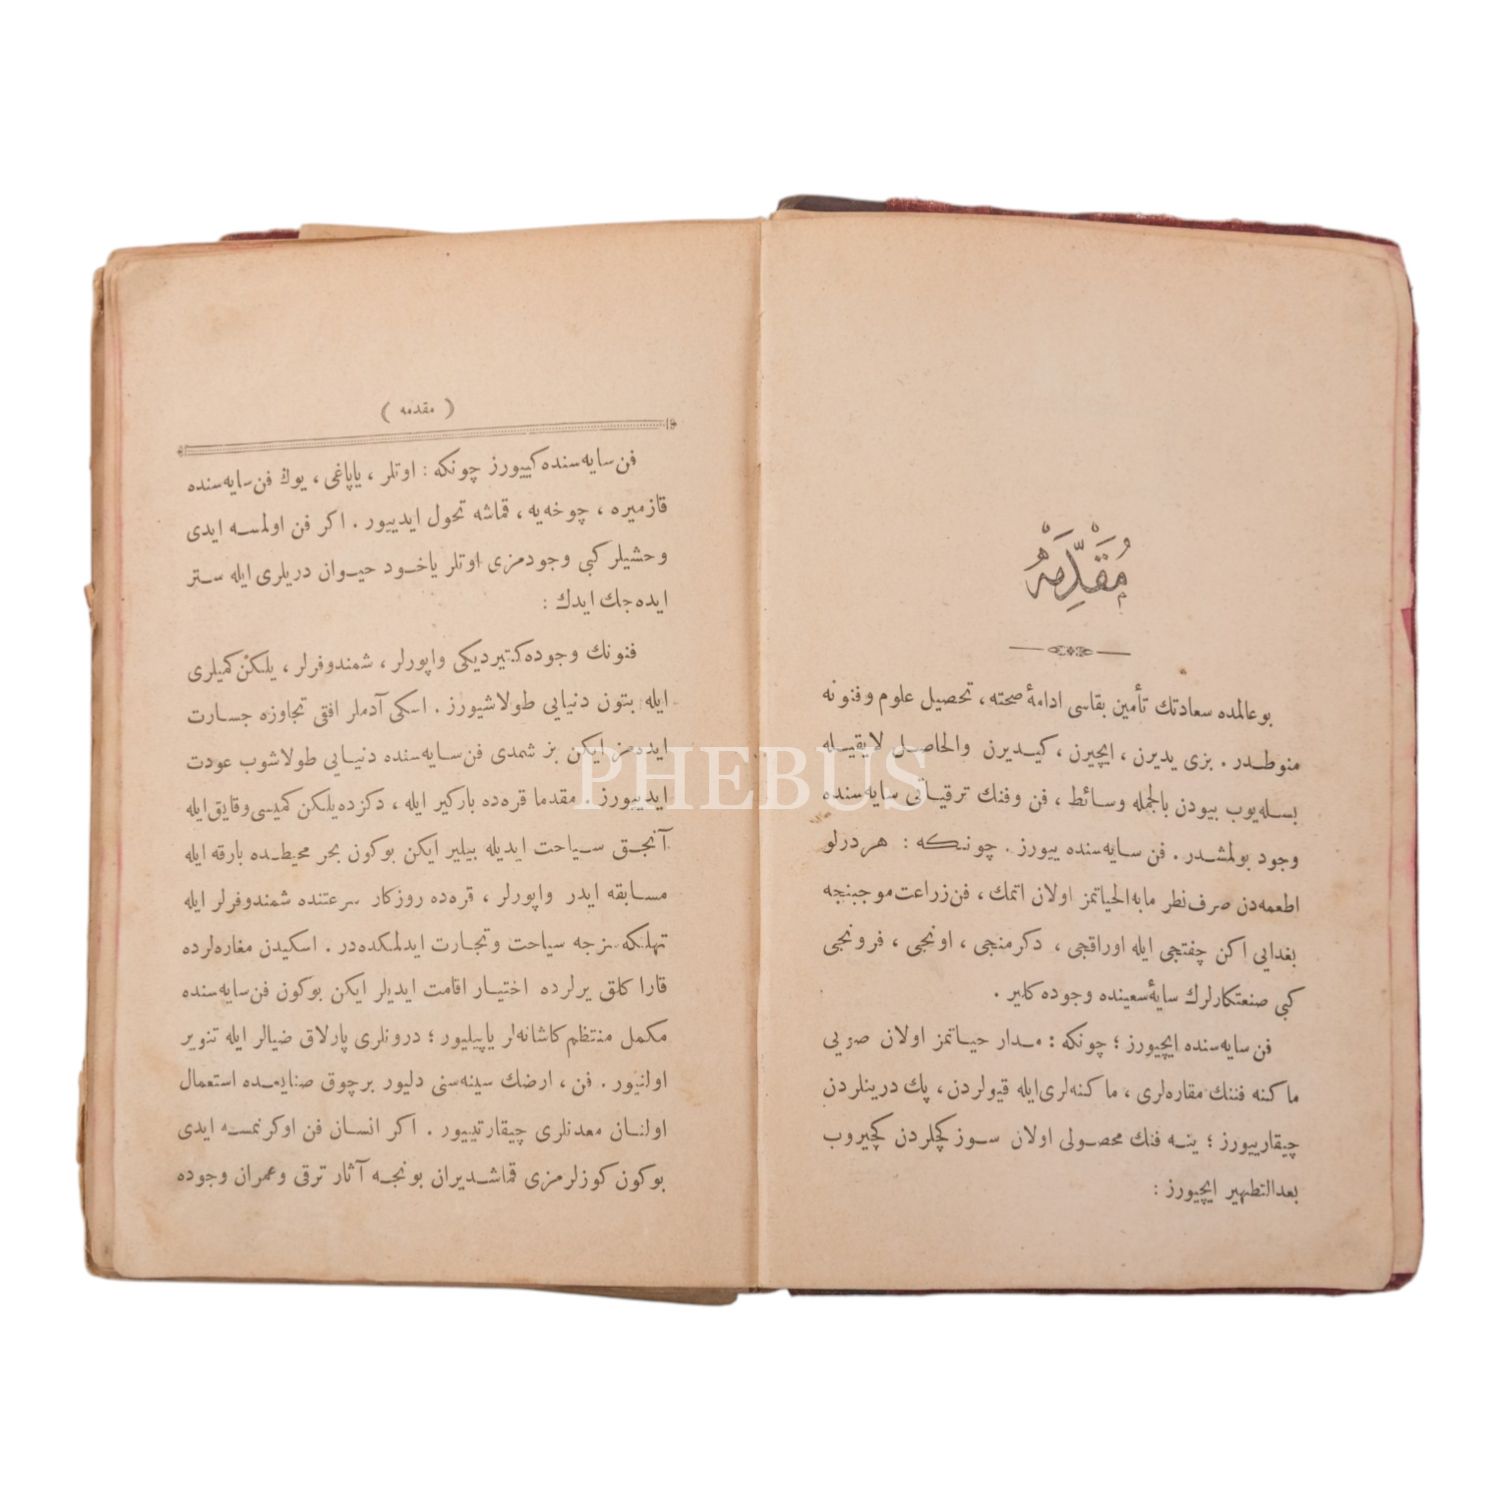 مُقَدِّمَهْ
بوعالمده سعادتك تأمین بقاسی ادامهٔ صحته ، تحصیل علوم وفنونه
منوطدر . بزی یدیرن ، ایچیرن ، کیدیرن والحاصل لایقیله
بسله‌یوب بیودن بالجمله وسائط ، فن وفنك ترقیاتی سایه‌سنده
وجود بولمشدر . فن سایه‌سنده ییورز . چونکه : هردرلو
اطعمه‌دن صرف‌نظر مابه‌الحیاتمز اولان اتمك ، فن‌زراعت‌موجبنجه
بغدایی اکن چفتجی ایله اوراقجی ، دکرمنجی ، اونجی ، فرونجی
کبی صنعتکارلرك سایهٔ‌سعینده وجوده‌کلیر .
فن سایه‌سنده ایچیورز ؛ چونکه : مدار حیاتمز اولان صویی
ماکنه فننك مقاره‌لری ، ماکنه‌لری‌ایله قیولردن ، پك درینلردن
چیقارییورز ؛ ینه فنك محصولی اولان سوزکچلردن کچیروب
بعدالتطهیر ایچیورز :
( مقدمه )
فن‌سایه‌سنده‌کییورز چونکه : اوتلر ، یاپاغی ، یوك فن‌سایه‌سنده
قازمیره ، چوخه‌یه ، قماشه تحول ایدییور . اکر فن اولمسه ایدی
وحشیلر کبی وجودمزی اوتلر یاخود حیوان دریلری ایله ستر
ایده‌جك ایدك :
فنونك وجوده‌کتیردیکی واپورلر ، شمندوفرلر ، یلکن‌کمیلری
ایله بتون دنیایی طولاشیورز . اسکی آدملر افقی تجاوزه جسارت
ایده‌مز ایکن بز شمدی فن‌سایه‌سنده دنیایی طولاشوب عودت
ایدییورز . مقدما قره‌ده بارکیر ایله ، دکزده‌یلکن کمیسی‌وقایق‌ایله
آنجق سیاحت ایدیله بیلیر ایکن بوکون بحر محیطده بارقه ایله
مسابقه ایدر واپورلر ، قره‌ده روزکار سرعتنده شمندوفرلر ایله
تهلکه‌سزجه سیاحت وتجارت ایدلمکده‌در . اسکیدن مغاره‌لرده
قارا کلق یرلرده اختیار اقامت ایدیلر ایکن بوکون فن‌سایه‌سنده
مکمل منتظم کاشانه‌لر یاپیلیور ؛ درونلری پارلاق ضیالر ایله تنویر
اولنیور . فن ، ارضك سینه‌سنی دلیور برچوق صنایعده استعمال
اولنان معدنلری چیقارتییور . اکر انسان فن اوکرنمسه ایدی
بوکون کوزلرمزی قماشدیران بونجه آثار ترقی وعمران وجوده
PHEBUS